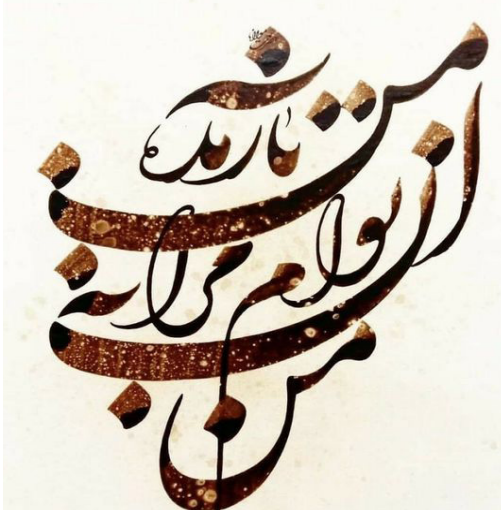 من
آن توام مرا به
من
باز مده